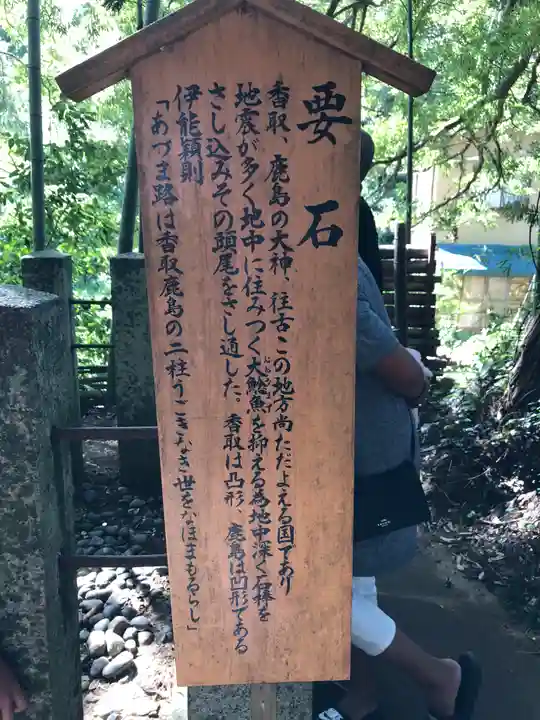 要石
香取、鹿島の大神、往古この地方尚ただよえる国であり
地震が多く地中に住みつく大鯰魚を抑える為地中深く石棒を
さし込みその頭尾をさし通した。香取は凸形、鹿島は凹形である
伊能穎則
「あづま路は香取鹿島の二柱うごきなき世をなほまもるらし」